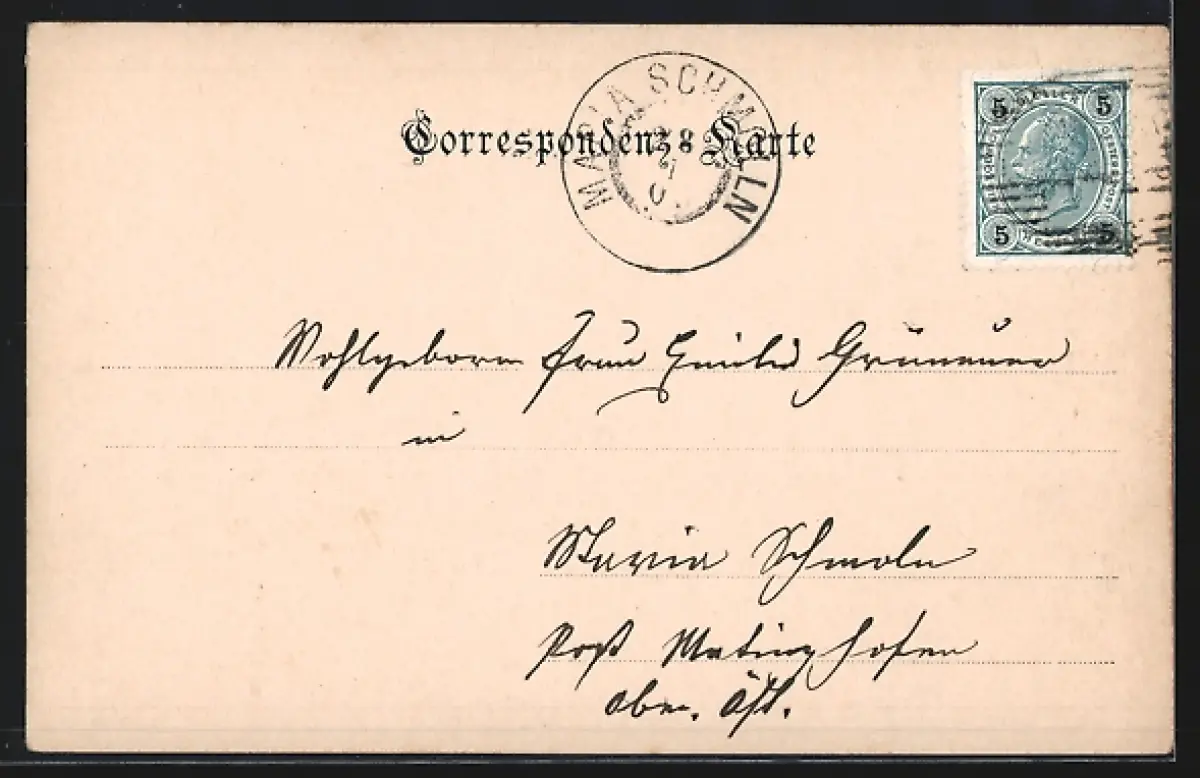 Correspondenz-Karte
MARIA SCHMOLLN
5 5
5 5
Wohlgeborn Frau Emilie Grünauer
in
Maria Schmoln
Post Matinghofen
Ober. Öst.